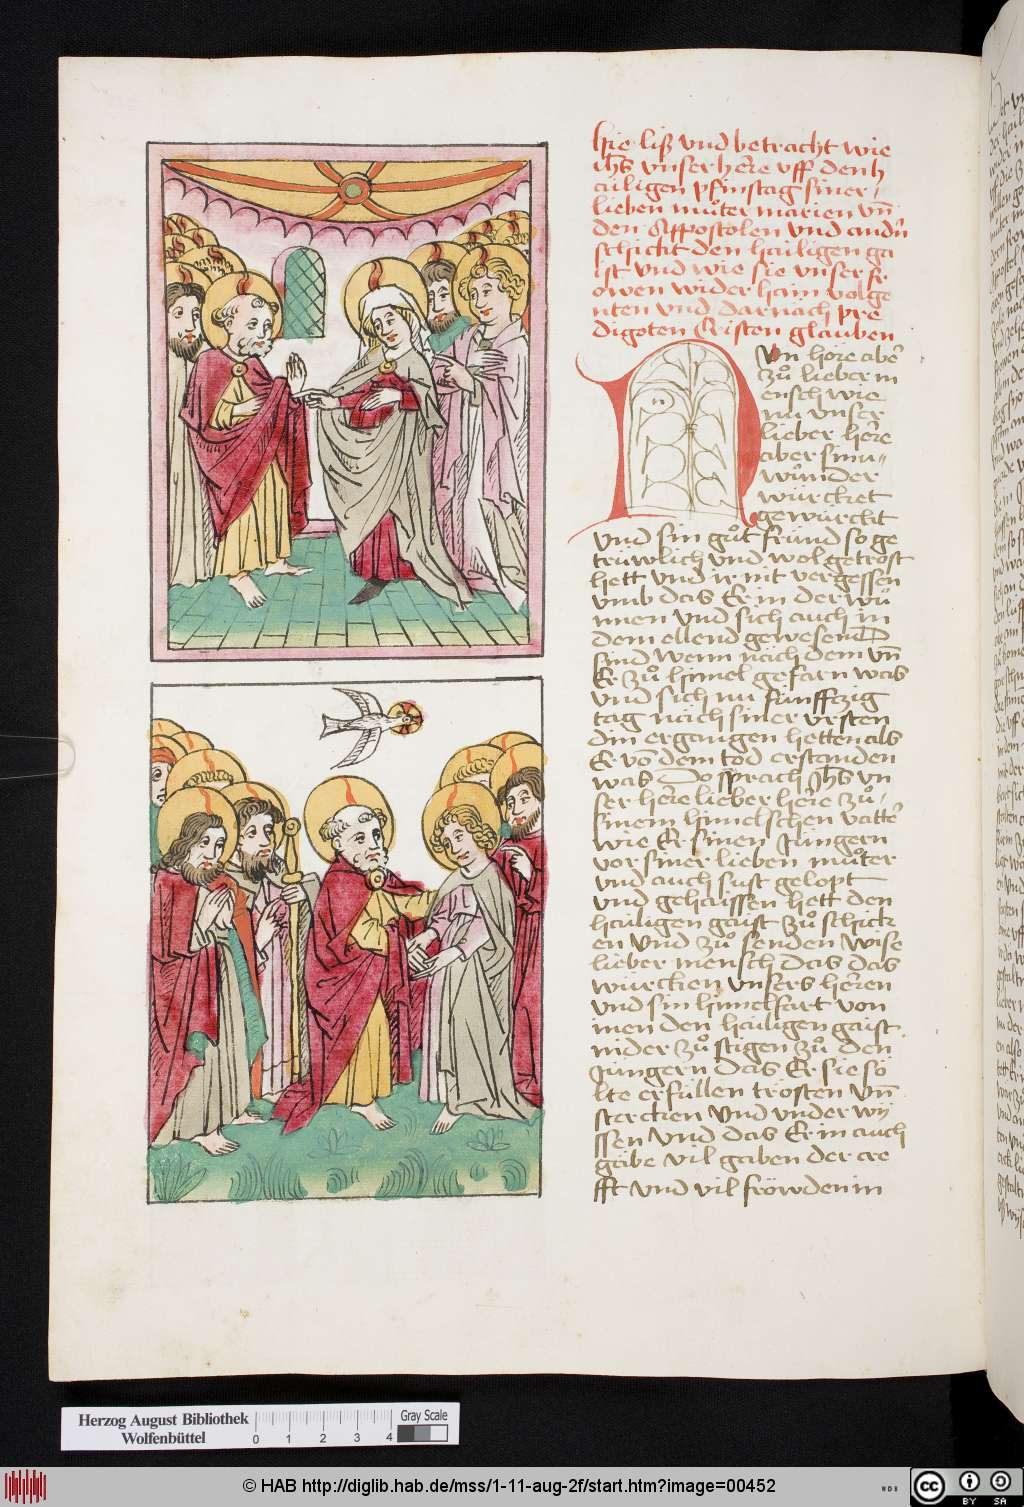 hie liß vnd betracht wie
ih̄s vnser here vff den h
ailigen pfinstag siner
lieben můter marien vn̄
den Appostolen vnd andn̄
schickt den hailigen ga
ist vnd wie sie vnser fr
owen wider haim volge
nten vnd darnach pre
digoten Cristen glauben
Nun höre aber
zů lieber m
ensch wie
nu vnser
lieber here
aber sinu
wunder
würcket
gewürckt
vnd sin gůt frund so ge
trüwlich vnd wol getröst
hett vnd ir nit vergessen
vmb das Er in der wů
nnen vnd sich auch in
dem ellend gewesen
sind wenn nach dem vn̄
Er zů himel gefarn was
vnd sich nu fünffzig
tag nach siner vrsten
din ergangen hetten als
Er võ dem tod erstanden
was Do sprach Jh̄s vn
ser here lieber here zů
sinem himelschen vatter
wie Er sinen Jüngern
vor siner lieben můter
vnd auch sust gelopt
vnd gehaissen hett den
hailigen gaist zů schick
en vnd zů senden wise
lieber mensch das das
würcken vnsers heren
vnd sin himelfart von
men den hailigen gaist
nider zů stigen zů den
Jüngern das Er sie so
lte erfüllen trösten vn̄
stercken vnd vnder wy
ssen vnd das Er in auch
gäbe vil gaben der cre
fft vnd vil fröwden in
Herzog August Bibliothek
Wolfenbüttel
0 1 2 3 4
Gray Scale
© HAB http://diglib.hab.de/mss/1-11-aug-2f/start.htm?image=00452
WDB
cc BY SA